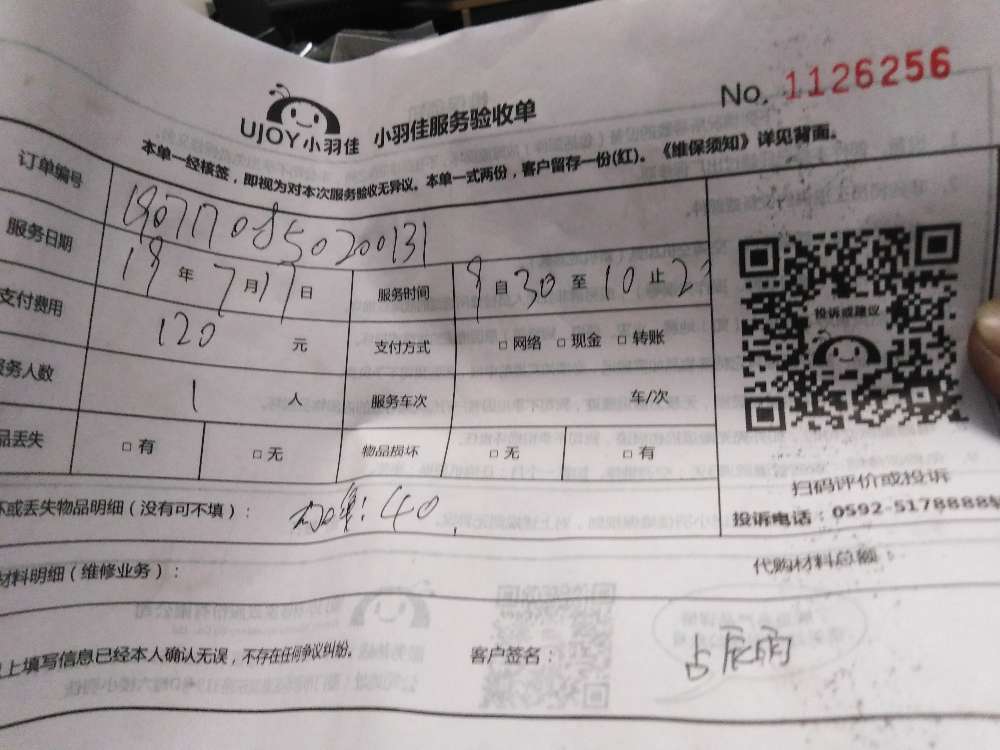 No. 1126256
UJOY小羽佳 小羽佳服务验收单
本单一经核签，即视为对本次服务验收无异议。本单一式两份，客户留存一份(红)。《维保须知》详见背面。
订单编号 1907170850200131
服务日期 19 年 7 月 17 日 服务时间 9 自 30 至 10 止
支付费用 120 元 支付方式 □ 网络 □ 现金 □ 转账
服务人数 1 人 服务车次 车/次
品丢失 □ 有 □ 无 物品损坏 □ 无 □ 有
投诉或建议
扫码评价或投诉
投诉电话：0592-5178888
坏或丢失物品明细（没有可不填）： 40
代购材料总额：
材料明细（维修业务）：
上填写信息已经本人确认无误，不存在任何争议纠纷。 客户签名：